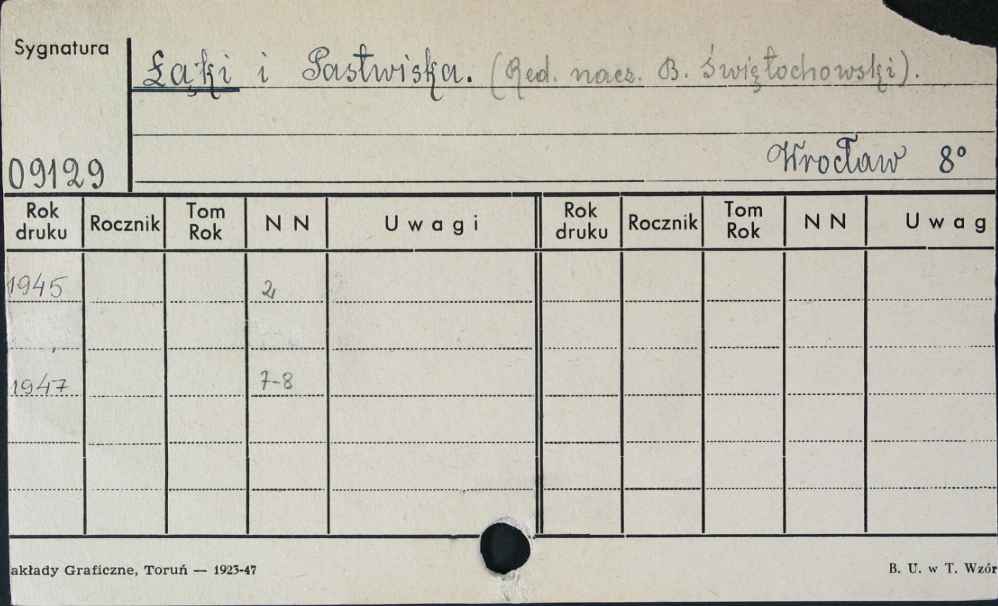 Sygnatura
Łąki i Pastwiska. (Red. nacz. B. Świętochowski).
Wrocław 8°
09129
Rok druku Rocznik Tom Rok NN Uwagi Rok druku Rocznik Tom Rok NN Uwag
1945 2
1947 7-8
akłady Graficzne, Toruń — 1923-47 B. U. w T. Wzór